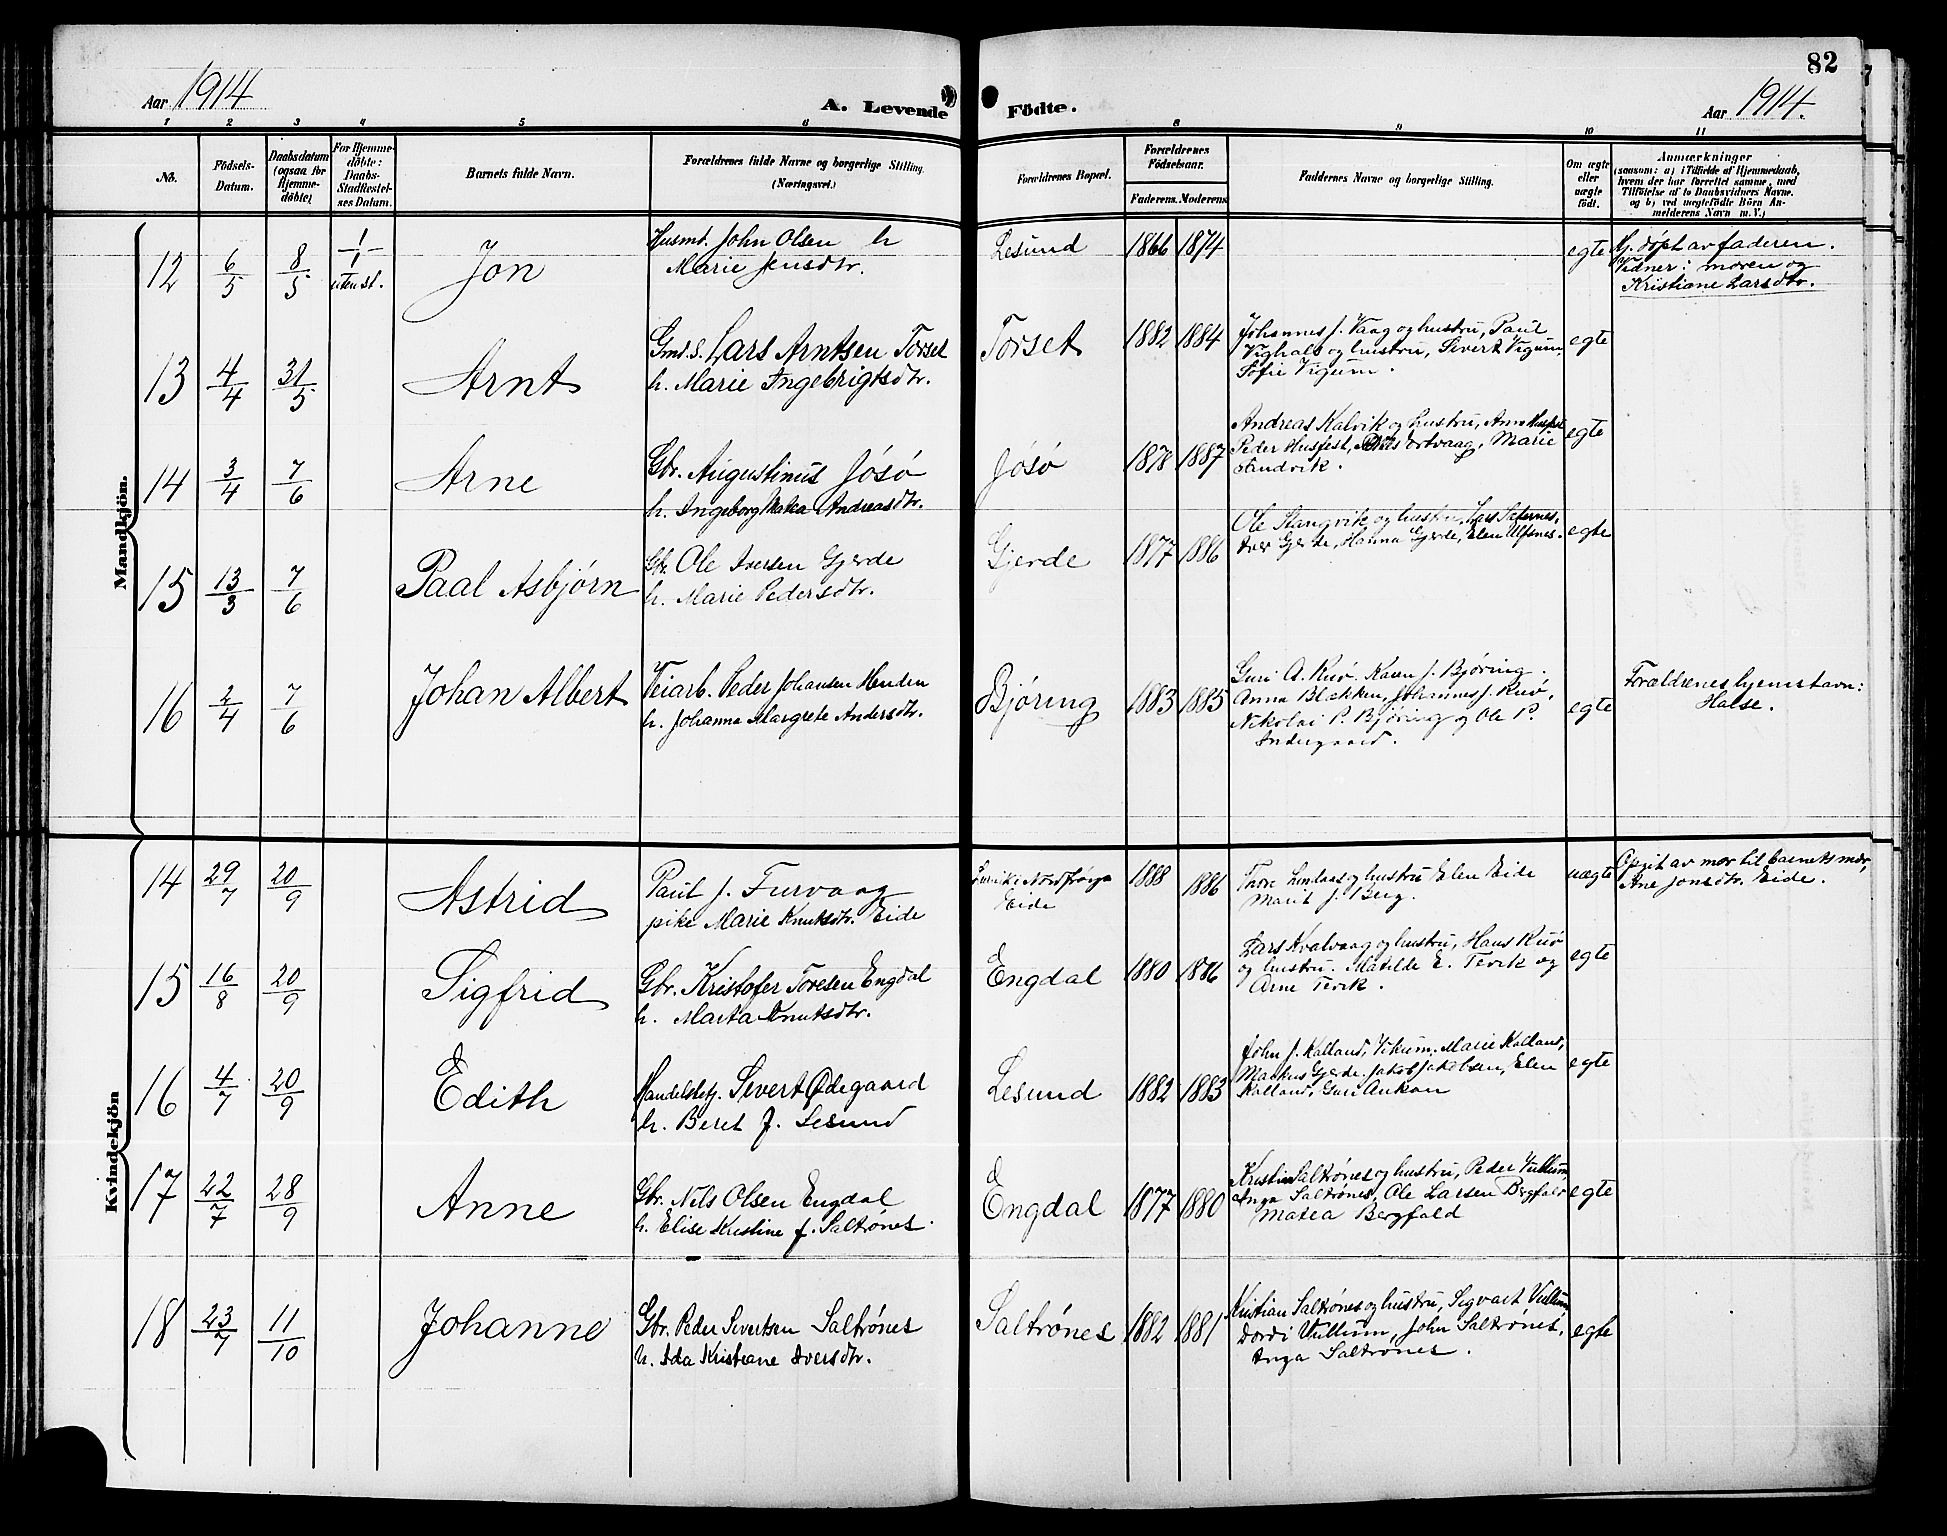 82
Aar 1914
A. Levende
Födte.
Aar 1914.
1 2 3 4 5 6 8 9 10 11
No.
Födsels-
Datum.
Daabsdatum
(ogsaa for
Hjemme-
döbte)
For Hjemme-
döbte:
Daabs-
Stadfæstel-
ses Datum.
Barnets fulde Navn.
Forældrenes fulde Navne og borgerlige Stilling.
(Næringsvei.)
Forældrenes Bopæl.
Forældrenes
Födselsaar.
Faderens. Moderens.
Faddernes Navne og borgerlige Stilling.
Om ægte
eller
uægte
født.
Anmærkninger
(saasom: a) i Tilfælde af Hjemmedaab,
hvem der har forrettet samme, med
Tilföielse af to Daabsvidners Navne.
og b) ved uægtefödte Börn An-
melderens Navn m. V.)
Mandkjön.
12 6/5 8/5 1/1 uten st. Jon
Husmd. John Olsen h
Marie Jensdtr.
Lesund 1866 1874 egte
Hj. døpt av faderen.
Vidner: moren og
Kristiane Larsdtr.
13 4/4 31/5 Arnt
Gmd.s. Lars Arntsen Torset
h. Marie Ingebrigtsdtr.
Torset 1882 1884
Johannes J. Vaag og hustru, Paul
Vighals og hustru, Sivert Vigum,
Sofie Vigum.
egte
14 3/4 7/6 Arne
Gbr. Augustinus Jøsø
h. Ingeborg Matea Andreasdtr.
Jøsø 1878 1887
Andreas Kalvik og hustru, Anna Husfest
Peder Husfest, Nils Ørtvaag, Marie
Sandvik.
egte
15 13/3 7/6 Paal Asbjørn
Gbr. Ole Iversen Gjerde
h. Marie Pedersdtr.
Gjerde 1877 1886
Ole Stangvik og hustru, Lars Settemes,
Iver Gjerde, Hanna Gjerde, Elen Ulfsnes.
egte
16 2/4 7/6 Johan Albert
Veiarb. Peder Johansen Henden
h. Johanna Margrete Andersdtr.
Bjøring 1883 1885
Guri A. Ruø. Karen J. Bjøring.
Anna Blekken, Johannes J. Ruø,
Nikolai P. Bjøring og Ole P.
Indergaard.
egte
Forældrenes hjemstavn:
Halse.
Kvindekjön
14 29/7 20/9 Astrid
Paul J. Furvaag
pike Marie Knutsdtr. Eide
Nordfrøya
Eide
1888 1886
Tore Lindaas og hustru Elen Eide
Marit J. Berg.
uægte
Opgit av mor til barnets mor,
Ane Jonsdtr. Eide.
15 16/8 20/9 Sigfrid
Gbr. Kristofer Toresen Engdal
h. Marta Knutsdtr.
Engdal 1880 1886
Lars Kvalvaag og hustru, Hans Ruø
og hustru. Matilde E. Tevik og
Arne Tevik.
egte
16 4/7 20/9 Edith
Handelsbetj. Sivert Ødegaard
h. Beret f. Lesund
Lesund 1882 1883
John J. Kalland, Vikum. Marie Kalland,
Markus Gjerde. Jakob Jakobsen, Elen
Kalland, Guri Aukan
egte
17 22/7 28/9 Anne
Gbr. Nils Olsen Engdal
h. Elise Kristine f. Saltrønes.
Engdal 1877 1880
Kristian Saltrønes og hustru, Peder Vullum,
Inga Saltrønes, Ole Larsen Bergfald
Matea Bergfald
egte
18 23/7 11/10 Johanne
Gbr. Peder Sivertsen Saltrønes
h. Ida Kristiane Iversdtr.
Saltrønes 1882 1881
Kristian Saltrønes og hustru, Sigvart Vullum
Dordi Vullum, John Saltrønes.
Inga Saltrønes.
egte